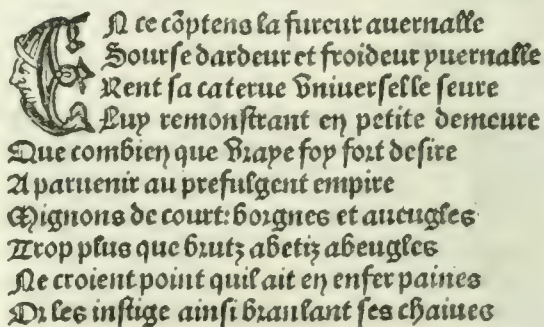 EN ce cõptens la fureur auernalle
Sourse dardeur et froideur yuernalle
Rent sa caterue vniuerselle seure
Luy remonstrant en petite demeure
Que combien que vraye foy fort desire
A paruenir au prefulgent empire
Mignons de court: borgnes et aueugles
Trop plus que brutz abetiz abeugles
Ne croient point quil ait en enfer paines
Or les instige ainsi branlant ses chaines